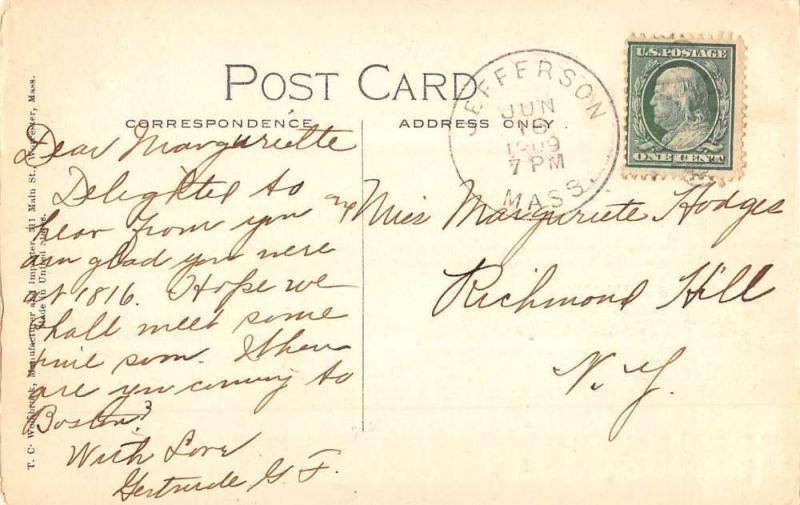 POST CARD
CORRESPONDENCE
ADDRESS ONLY
JEFFERSON
JUN
1909
7 PM
MASS.
U.S. POSTAGE
ONE CENT
Dear Marguriette
Delighted to
hear from you &
am glad you were
at 1816. Hope we
shall meet some
time soon. When
are you coming to
Boston?
With Love
Gertrude G. F.
Miss Marguriete Hodges
Richmond Hill
N.Y.
T. C. Manufacturer and Importer, 311 Main St., Worcester, Mass.
Made in United States.